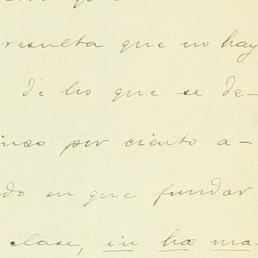 resulta que no hay
di ho que se de-
inco por ciento a-
do en que fundar
clase, in hac ma-